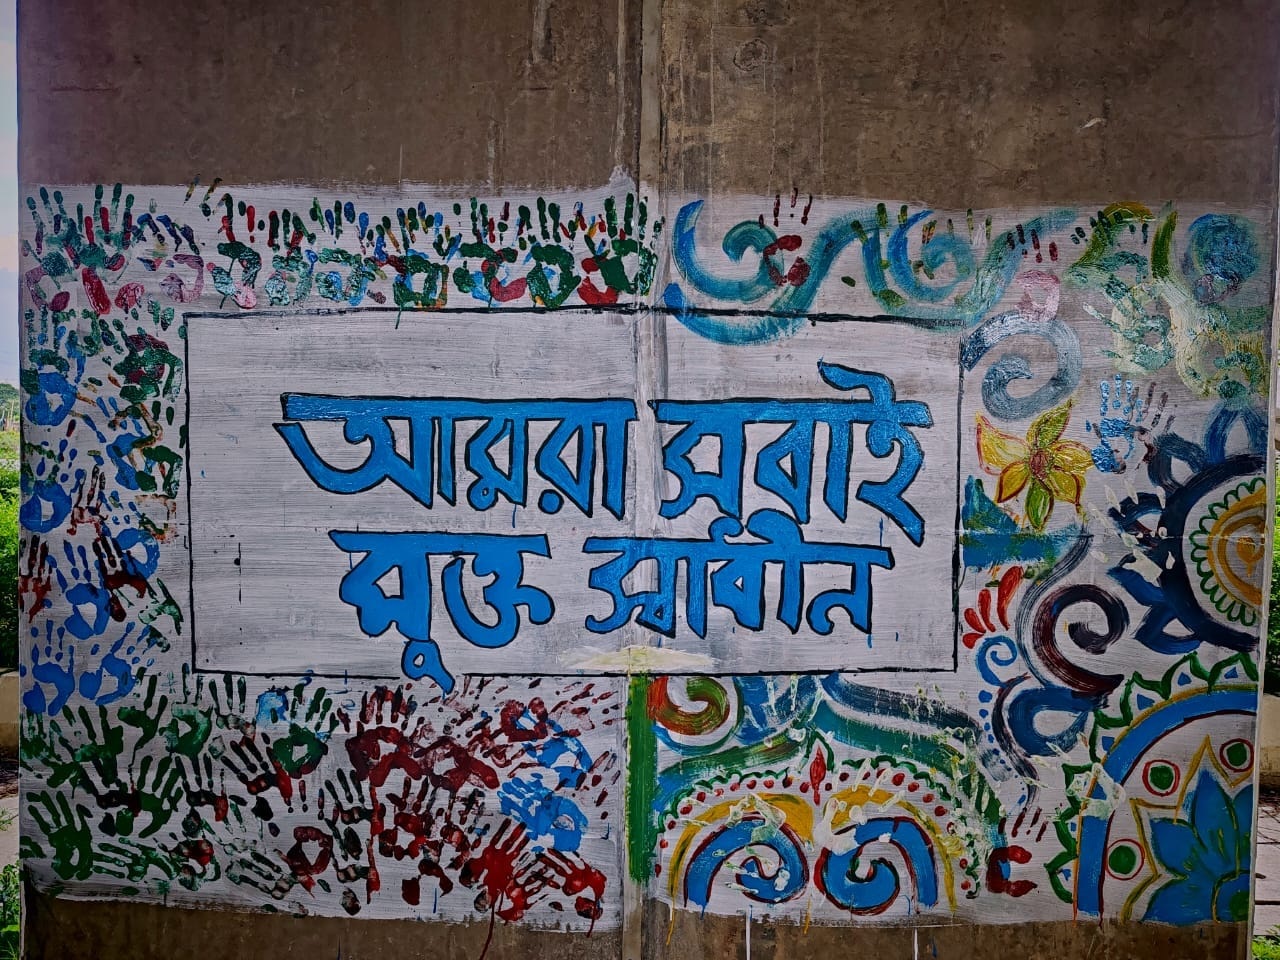 আমরা সবাই
মুক্ত স্বাধীন